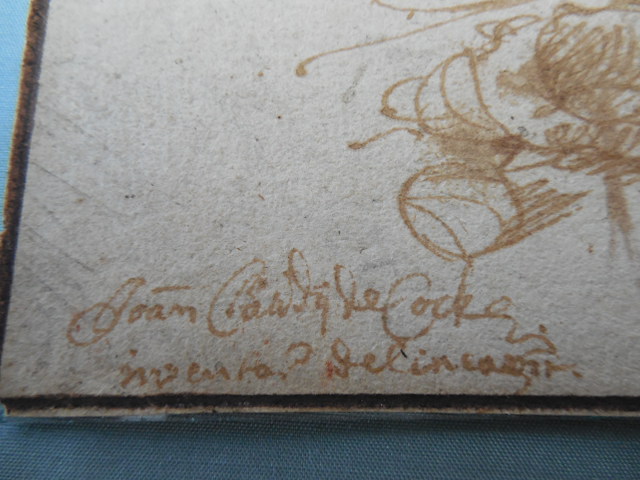 Joãn Claudij de Cock
inventor delineavit.